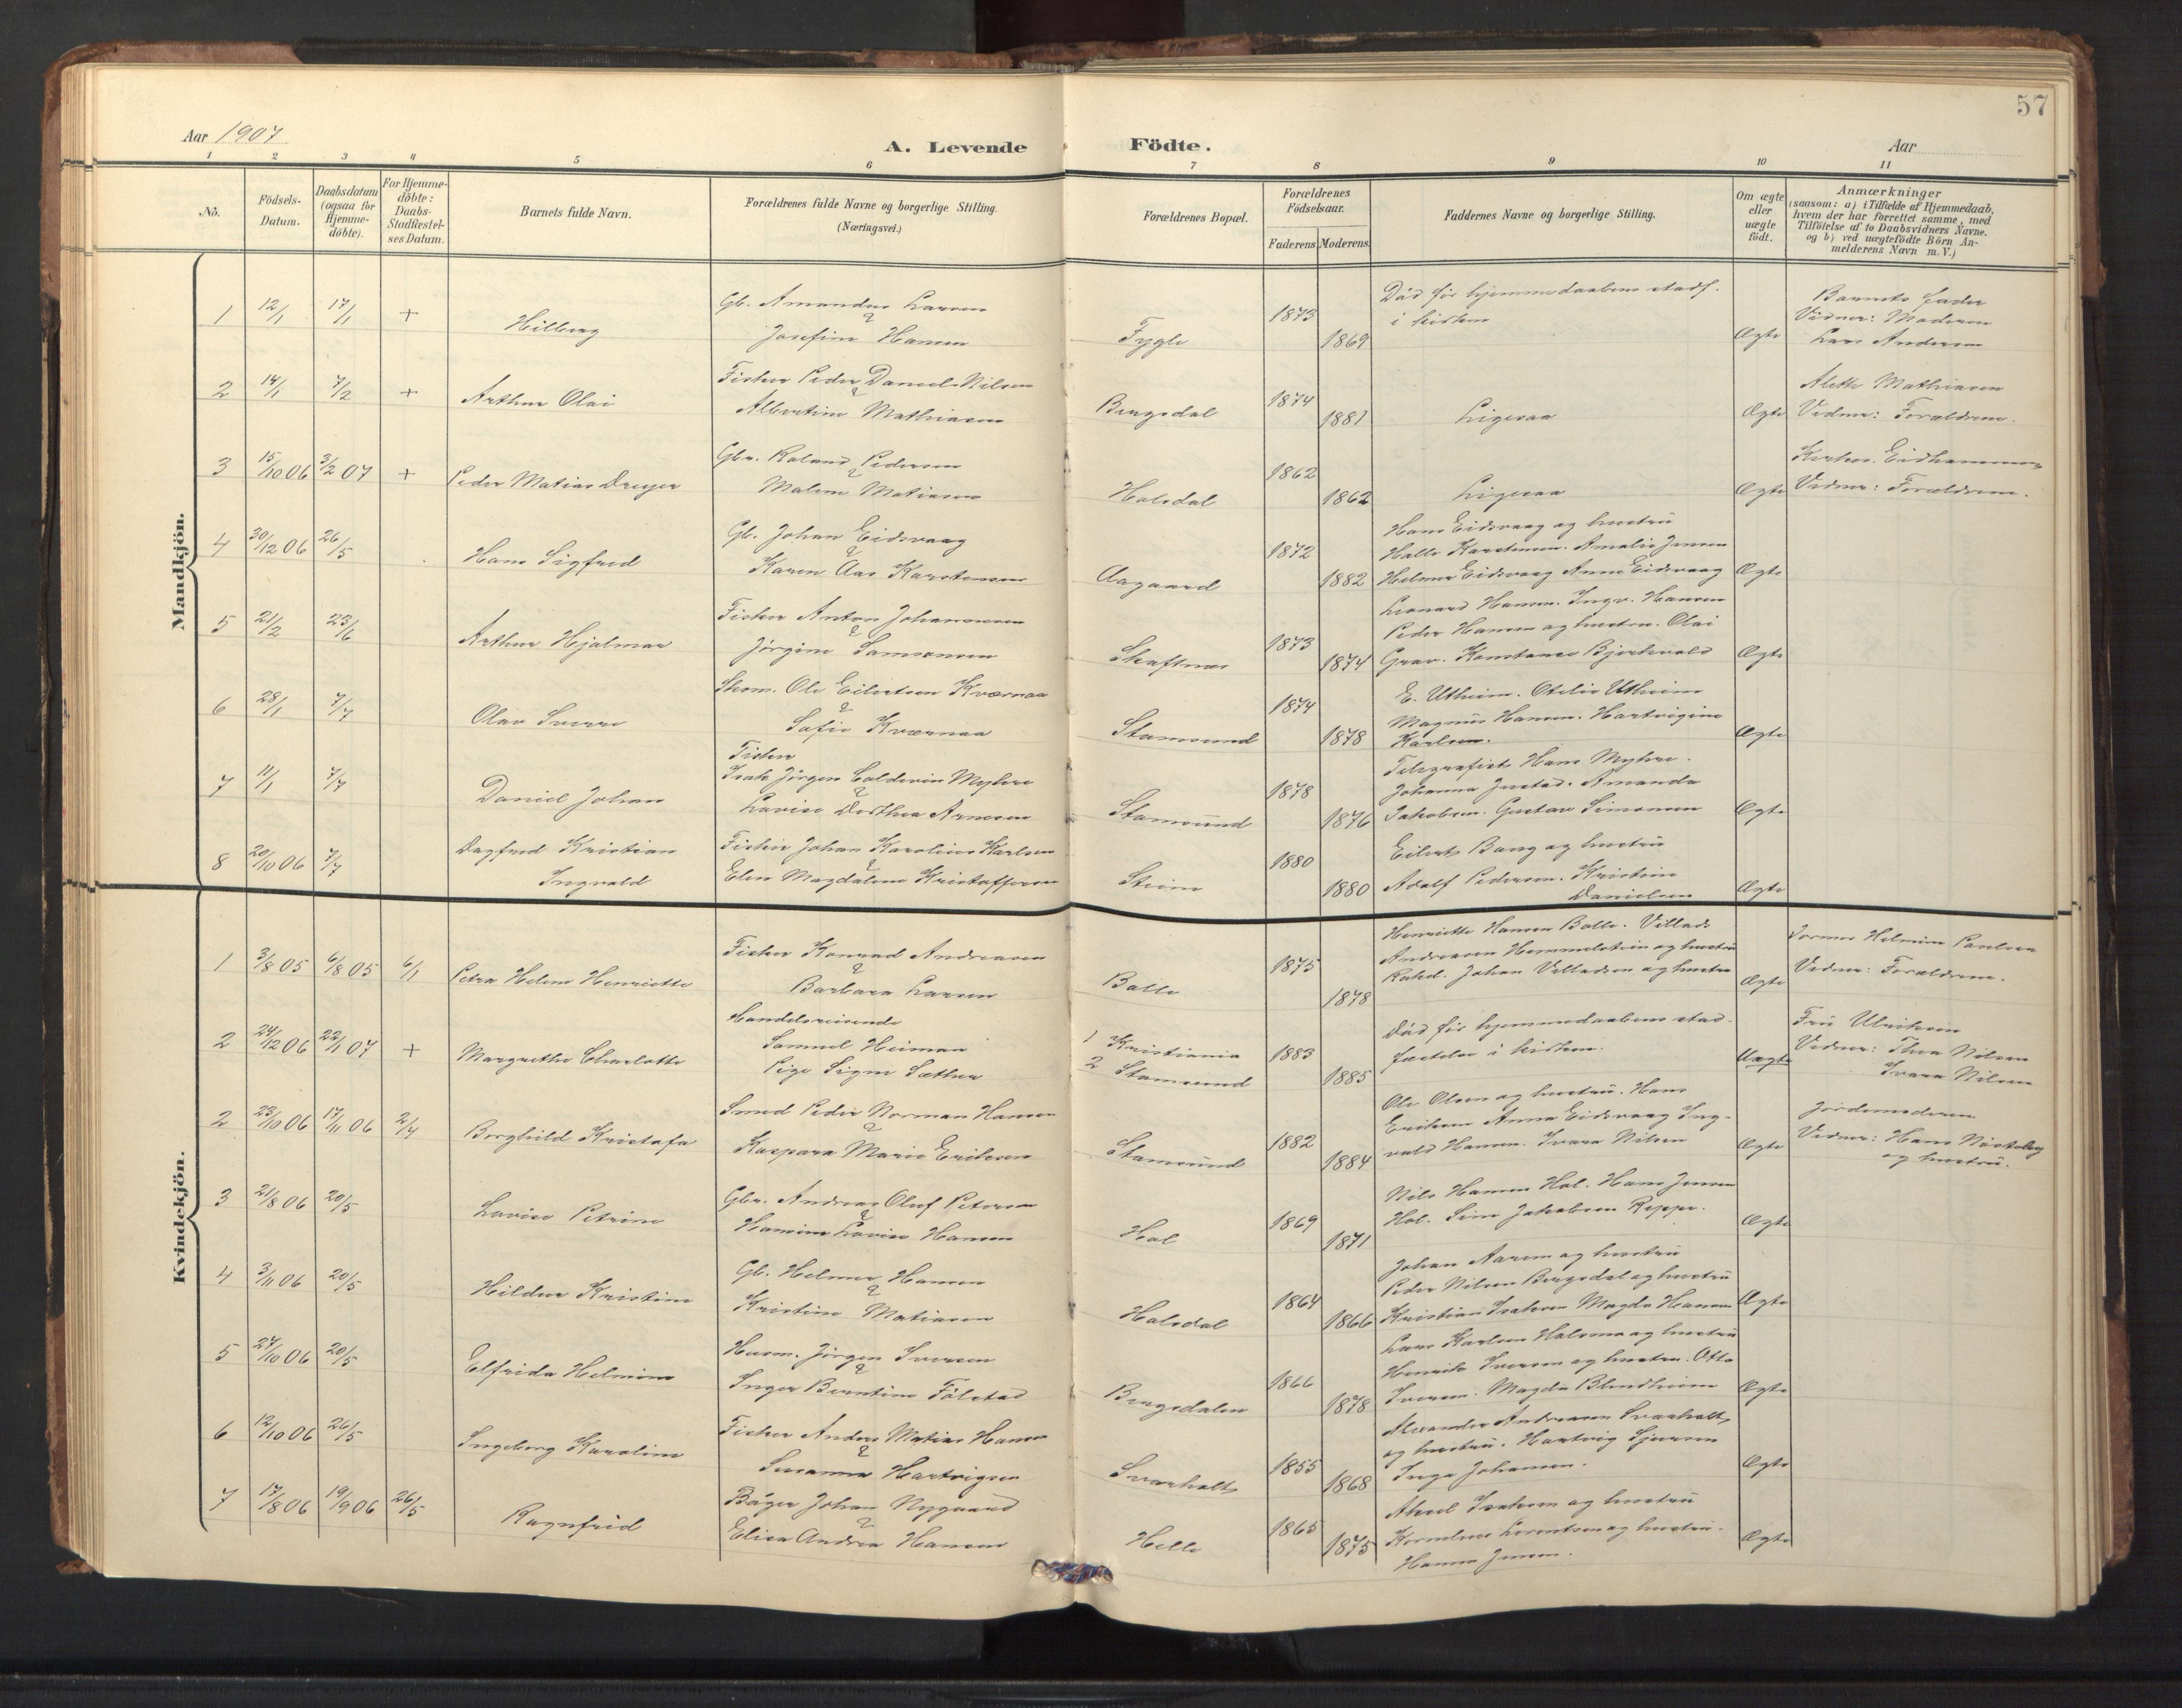 57
Aar 1907
A. Levende Födte.
Aar
1 2 3 4 5 6 7 8 9 10 11
No.
Födsels-Datum.
Daabsdatum (ogsaa for Hjemme-döbte).
For Hjemme-döbte: Daabs-Stadfæstel-ses Datum.
Barnets fulde Navn.
Forældrenes fulde Navne og borgerlige Stilling.
(Næringsvei.)
Forældrenes Bopæl.
Forældrenes Födselsaar.
Faderens Moderens
Faddernes Navne og borgerlige Stilling.
Om ægte eller uægte födt.
Anmærkninger
(saasom: a) i Tilfælde af Hjemmedaab,
hvem der har forrettet samme, med
Tilföielse af to Daabsvidners Navne.
og b) ved uægtefödte Börn An-
melderens Navn m. V.)
Mandkjön.
1 12/1 17/1 + Hilberg
Gb. Amandus Larsen
&
Josefine Hansen
Fygle 1873 1869
Död för hjemmedaabens stadf.
i kirken
Ægte
Barnets Fader
Vidner: Moderen
Lars Andersen
2 14/1 7/2 + Arthur Olai
Fisker Peder Daniel Nilsen
&
Albertine Mathiasen
Bergsdal 1874 1881
Ligesaa
Ægte
Alette Mathiasen
Vidner: Forældrene.
3 15/10 06 3/2 07 + Peder Matias Dreyer
Gbr. Roland Pedersen
&
Malene Matiasen
Halsdal 1862 1862
Ligesaa
Ægte
Eidhammer
Vidner: Forældrene.
4 30/12 06 26/5 Hans Sigfred
Gb. Johan Eidsvaag
&
Karen Aas Karstensen
Aagaard 1872 1882
Hans Eidsvaag og hustru
Halle Karstensen. Amalie Jensen
Helmer Eidsvaag Anna Eidsvaag
Ægte
5 21/2 23/6 Arthur Hjalmar
Fisker Anton Johannesen
&
Jörgine Samsonsen
Skaftnes 1873 1874
Leonard Hansen. Ingv. Hansen
Peder Hansen og hustru. Olai
Grav. Konstance Bjerkvold
Ægte
6 28/1 7/7 Olav Sverre
Skom. Ole Eilertsen Kværnaa
&
Sofie Kværnaa
Stamsund 1874 1878
E. Utheim. Otelie Utheim
Magnus Hansen. Hartvigine
Karlsen.
Ægte
7 11/1 7/7 Daniel Johan
Fisker
Isak Jörgen Calderin Myhre
&
Lovise Dorthea Arnesen
Stamsund 1878 1876
Telegrafist Hans Myhre.
Johanna Justad. Amanda
Jakobsen. Gustav Simonsen
Ægte
8 20/10 06 7/7 Dagfred Kristian
Ingvald
Fisker Johan Karolius Karlsen
&
Elen Magdalene Kristoffersen
Steine 1880 1880
Eilert Bang og hustru
Adolf Pedersen. Kristine
Danielsen
Ægte
Kvindekjön.
1 3/8 05 6/8 05 6/1 Petra Helene Henriette
Fisker Konrad Andreasen
&
Barbara Larsen
Balle 1875 1878
Henriette Hansen Balle. Villads
Andreassen Hemmelstein og hustru
Rakel. Johan Villadsen og hustru
Ægte
Jormor Helmine Paulsen
Vidner: Forældrene.
2 24/12 06 22/1 07 + Margrethe Charlotte
Handelsreisende
Samuel Heiman
Pige Signe Sæther
1 Kristiania
2 Stamsund
1883 1885
Död för hjemmedaabens stad-
fæstelse i kirken.
Uægte
Fru Ulriksen
Vidner: Thea Nilsen
Ivara Nilsen
2 23/10 06 17/11 06 2/4 Borghild Kristofa
Smed Peder Norman Hansen
&
Kaspara Marie Eriksen
Stamsund 1882 1884
Ole Olsen og hustru. Hans
Eriksen Anna Eidsvaag Ing-
vald Hansen. Ivara Nilsen
Ægte
Jordemoderen
Vidner: Hans Nösteberg
og hustru.
3 21/8 06 20/5 Lovise Petrine
Gbr. Andreas Oluf Petersen
&
Hansine Lovise Hansen
Hol 1869 1871
Nils Hansen Hol. Hans Jensen
Hol. Sine Jakobsen Reppe.
Ægte
4 3/11 06 20/5 Hildur Kristine
Gb. Helmer Hansen
&
Kristine Matiasen
Halsdal 1864 1866
Johan Aarsen og hustru
Peder Nilsen Bergsdal og hustru
Kristian Isaksen Magda Hansen
Ægte
5 27/10 06 20/5 Elfrida Helmine
Husm. Jörgen Iversen
&
Inger Berntine Fölstad
Bergsdalen 1866 1878
Lars Karlsen Halsmo og hustru
Henrik Iversen og hustru. Otto
Iversen. Magda Blindheim
Ægte
6 12/10 06 26/5 Ingeborg Karoline
Fisker Anders Matias Hansen
&
Susanna Hartvigsen
Svarholt 1855 1868
Alexander Andreasen Svarholt
og hustru. Hartvig Sjursen
Inga Johansen.
Ægte
7 17/8 06 19/9 06 26/5 Ragnfrid
Bager Johan Nygaard
&
Elisa Andrea Hansen
Helle 1865 1875
Aksel Isaksen og hustru
Kornelius Lorentsen og hustru.
Hanna Jensen.
Ægte